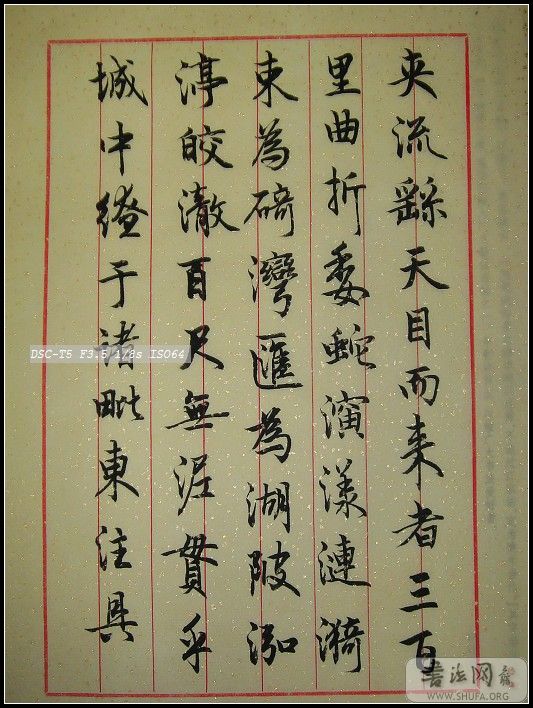 夾流繇天目而来者三百
里曲折委蛇演漾漣漪
束為碕灣匯為湖陂泓
渟皎澈百尺無泥貫乎
城中繚于諸毗東注具
DSC-T5 F3.5 1/8s ISO64
书法网
WWW.SHUFA.ORG